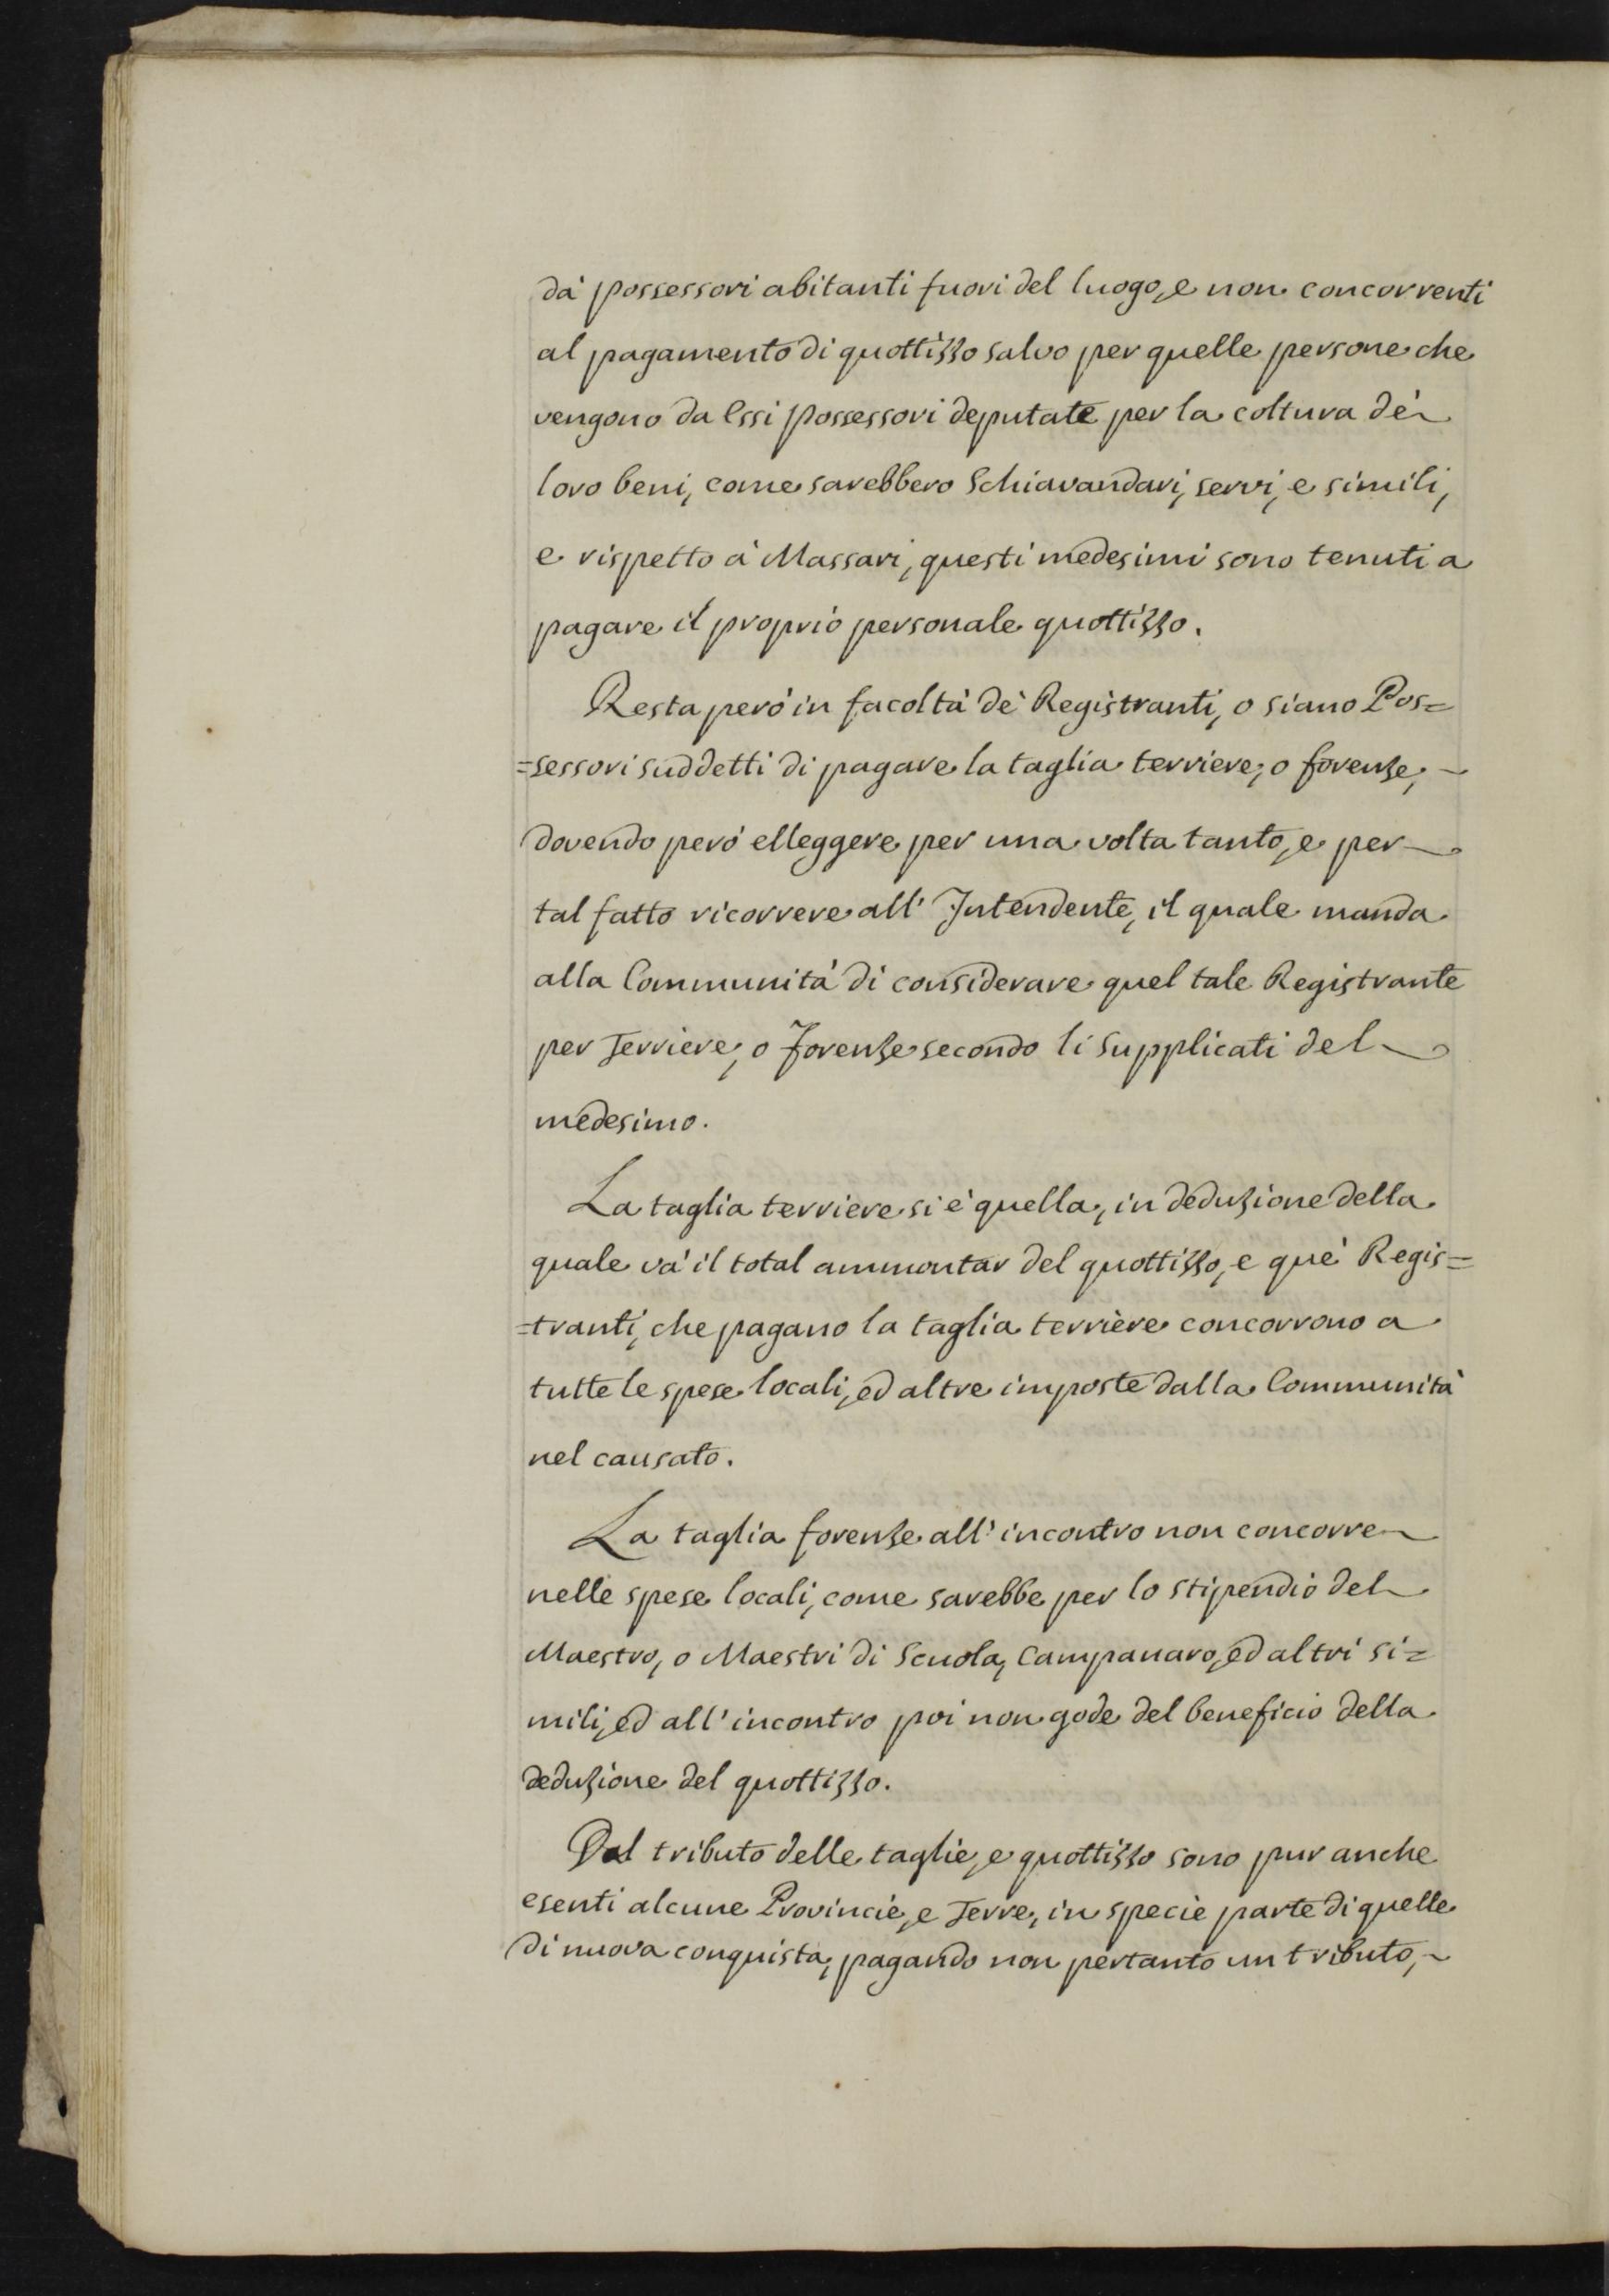 dà possessori abitanti fuori del luogo, e non concorrenti
al pagamento di quottizzo salvo per quelle persone che
vengono da Essi possessori deputate per la coltura dè
loro beni, come sarebbero Schiavandari, servi, e simili,
e rispetto à Massari, questi medesimi sono tenuti a
pagare il proprio personale quottizzo.
Resta però in facoltà dè Registranti, o siano Pos=
=sessori suddetti di pagare la taglia terriere, o forenze,
dovendo però elleggere per una volta tanto, e per
tal fatto ricorrere all' Intendente, il quale manda
alla Communità di considerare quel tale Registrante
per Terriere, o Forenze secondo li supplicati del
medesimo.
La taglia terriere si è quella, in deduzione della
quale và il total ammontar del quottizzo, e què Regis=
=tranti, che pagano la taglia terrière concorrono a
tutte le spese locali, ed altre imposte dalla Communità
nel causato.
La taglia forenze all' incontro non concorre
nelle spese locali, come sarebbe per lo stipendio del
Maestro, o Maestri di Scuola, Campanaro, ed altri si=
mili, ed all' incontro poi non gode del beneficio della
deduzione del quottizzo.
Dal tributo delle taglie, e quottizzo sono pur anche
esenti alcune Provincie, e Terre, in specie parte di quelle
di nuova conquista, pagando non pertanto un tributo,